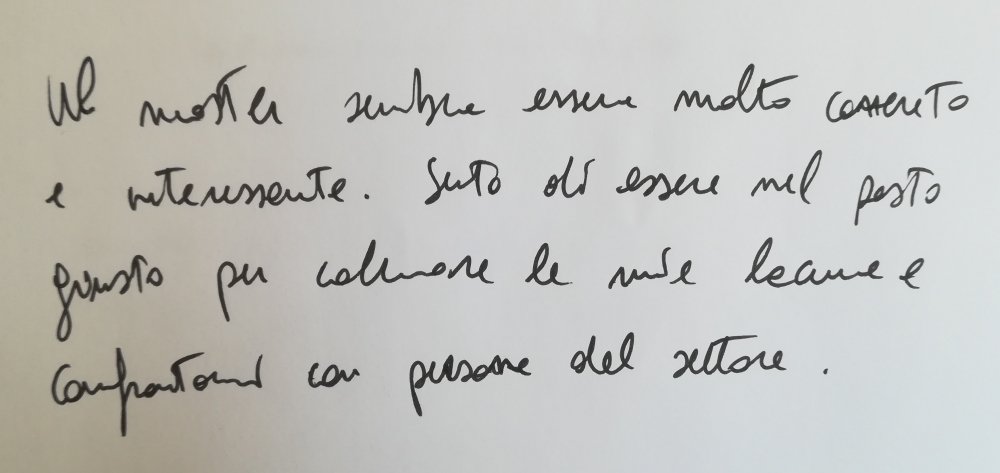 Il master sembra essere molto concreto
e interessante. Sento di essere nel posto
giusto per colmare le mie lacune e
confrontarmi con persone del settore.